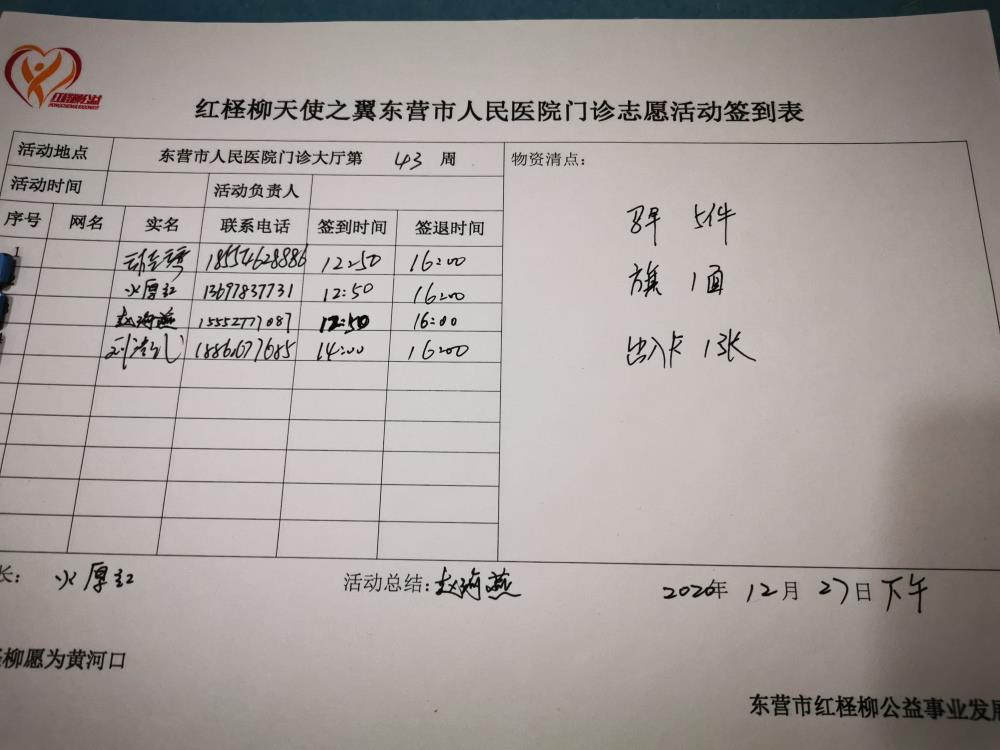 红柽柳公益
红柽柳天使之翼东营市人民医院门诊志愿活动签到表
活动地点 东营市人民医院门诊大厅第 43 周 物资清点：
活动时间 活动负责人
序号 网名 实名 联系电话 签到时间 签退时间
1 18554628886 12:50 16:00
火厚红 13697837731 12:50 16:00
赵海燕 15552777087 12:50 16:00
14:00 16:00
5件
旗 1面
出入卡 1张
长： 火厚红 活动总结：赵海燕 2020年 12月 27日下午
柳愿为黄河口
东营市红柽柳公益事业发展